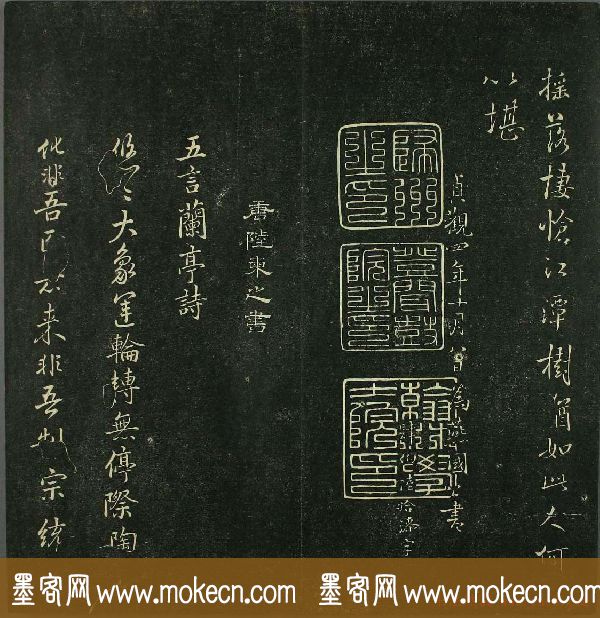 搖落悽愴江潭樹猶如此人何
以堪
貞觀四年十月八日為燕國公書
唐陸柬之書
五言蘭亭詩
悠悠大象運輪轉無停際陶
化非吾因去来非吾制宗統
墨客网 www.mokecn.com 墨客网 www.mokecn.com